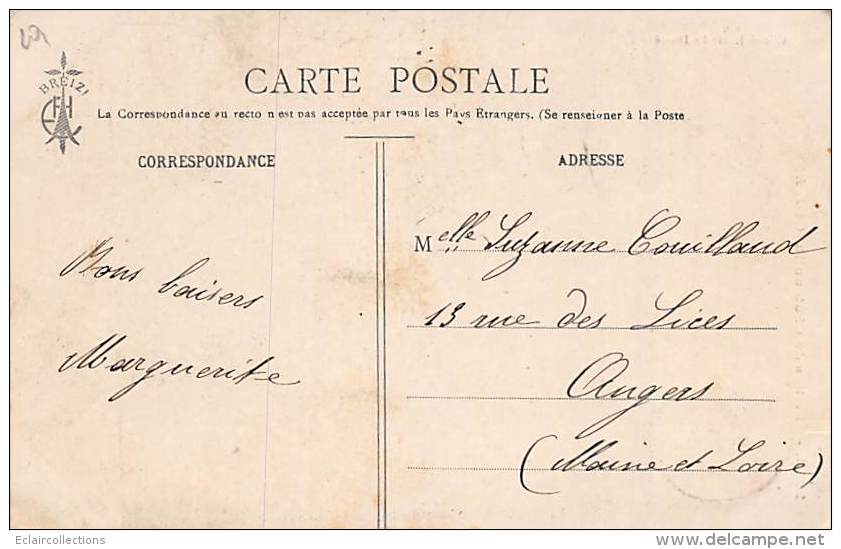 BREIZ
CARTE POSTALE
La Correspondance au recto n'est pas acceptée par tous les Pays Etrangers. (Se renseigner à la Poste
CORRESPONDANCE
Bons baisers
Marguerite
ADRESSE
Melle Suzanne Couillaud
13 rue des Lices
Angers
(Maine et Loire)
Eclaircollections
delcampe.net